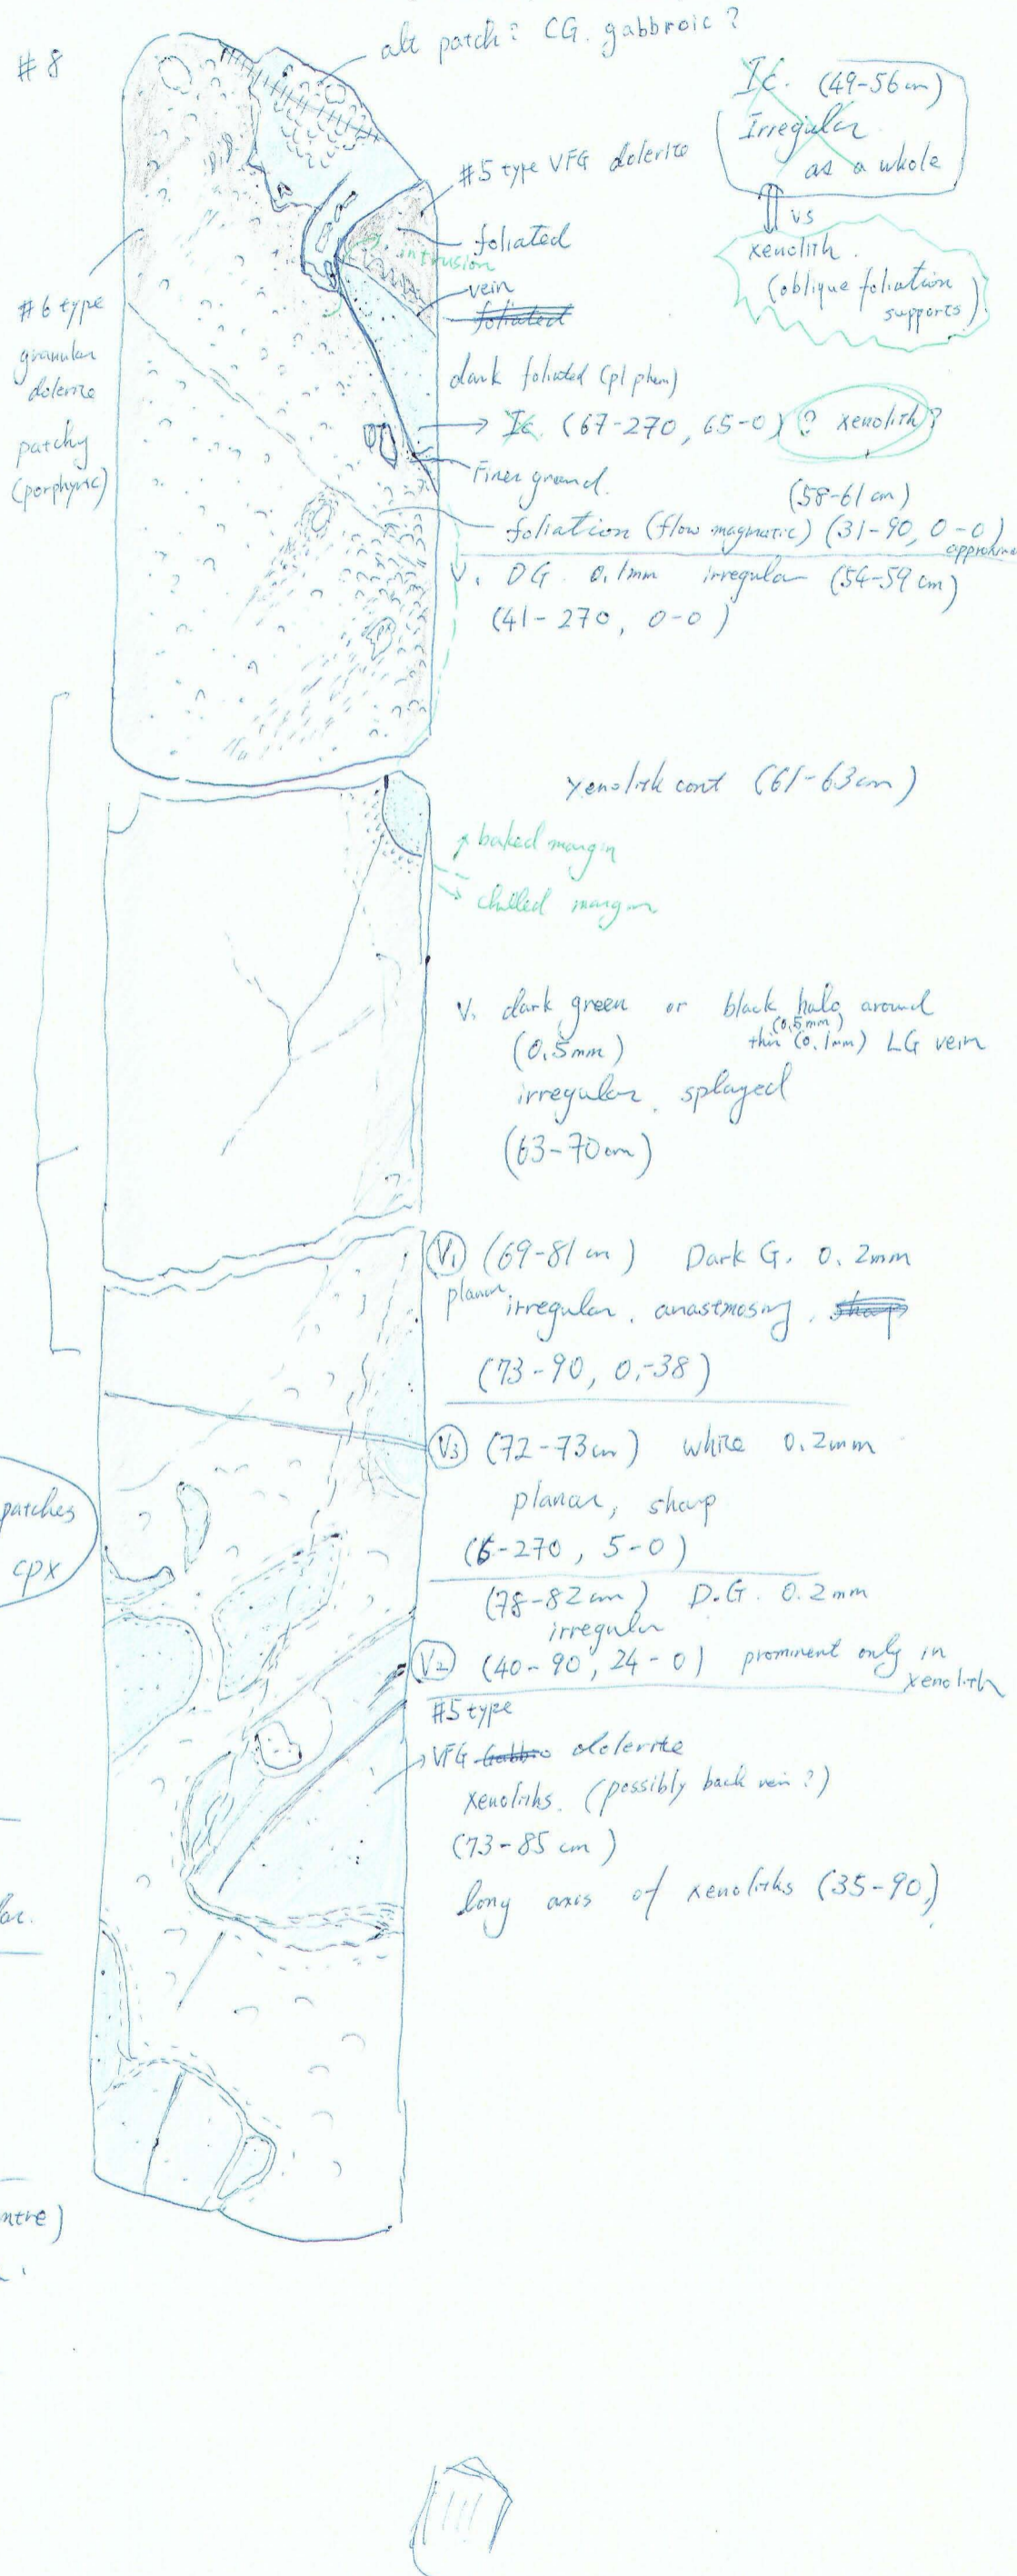 # 8
alt patch? CG. gabbroic?
Ic. (49-56cm)
Irregular
as a whole
vs
xenolith.
(oblique foliation
supports)
#5 type VFG dolerite
foliated
intrusion
vein
foliated
#6 type
granular
dolerite
patchy
(porphyric)
dark foliated (pl phen)
Ic. (67-270, 65-0) (? xenolith?
Finer ground.
(58-61cm)
foliation (flow magmatic) (31-90, 0-0)
V. DG. 0.1mm irregular (54-59cm)
(41-270, 0-0)
xenolith cont (61-63cm)
baked margin
chilled margin
V. dark green or black halo around
(0.5mm)
(0.5mm) thin (0.1mm) LG vein
irregular, splayed
(63-70cm)
V1 (69-81cm) Dark G. 0.2mm
planar, irregular, anastmosing, sharp
(73-90, 0-38)
V3 (72-73cm) white 0.2mm
planar, sharp
(6-270, 5-0)
patches
cpx
(78-82cm) D.G. 0.2mm
irregular
V2 (40-90, 24-0) prominent only in
xenolith
#5 type
VFG Gabbro dolerite
xenoliths. (possibly back vein?)
(73-85cm)
long axis of xenoliths (35-90,)
ntre)